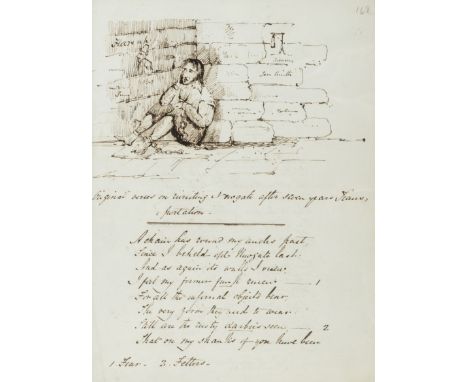 168
Original verses on revisiting Newgate after seven years Trans-
portation.
A chain has round my ancles past,
Since I beheld old Newgate last
And as again its walls I view,
I feel my former funk renew 1
For all the infernal objects bear
The very form they used to wear
Still are the rusty darbies seen 2
That on my shanks of yore have been
1. Fear. 2. Fetters.